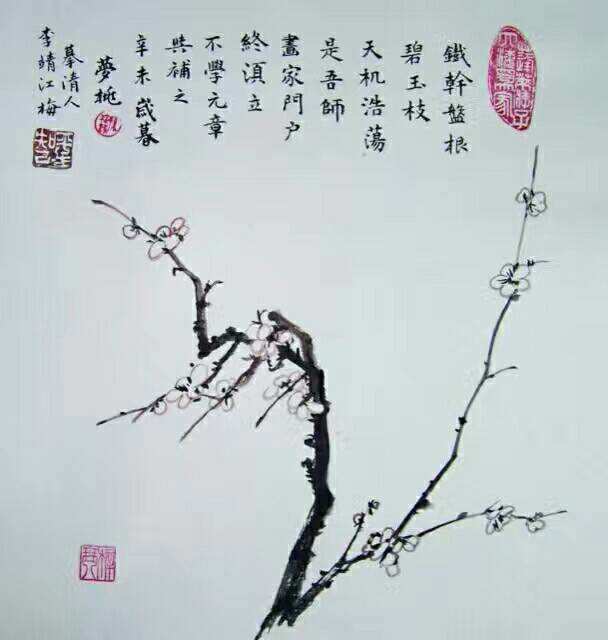 鐵幹盤根
碧玉枝
天机浩蕩
是吾師
畫家門户
終須立
不學元章
與補之
辛未歲暮
夢桃
摹清人
李晴江梅